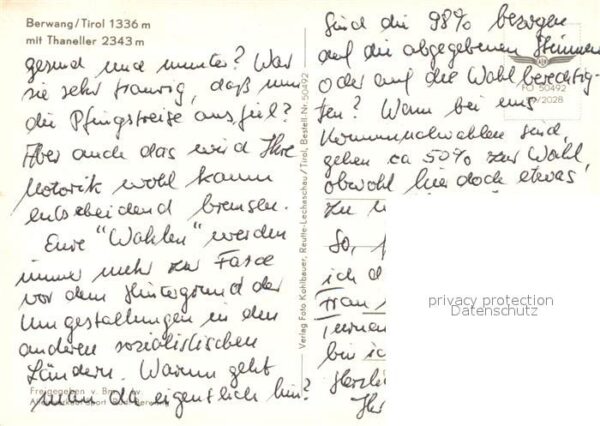 Berwang/Tirol 1336 m
mit Thaneller 2343 m
gesund und munter? War
sie sehr traurig, daß nun
die Pfingstreise ausfiel?
Aber auch das wird Ihre
Motorik wohl kaum
entscheidend bremsen.
Eure "Wahlen" werden
immer mehr zur Farce
vor dem Hintergrund der
Umgestaltungen in den
anderen sozialistischen
Ländern. Warum geht
man da eigentlich hin?
Freigegeben v.
Verlag Foto Kohlbauer, Reutte-Lechaschau/Tirol, Bestell-Nr. 50492
Sind die 98% bezogen
auf die abgegebenen Stimmen
oder auf die Wahlberechtig-
ten? Wenn bei uns
Kommunalwahlen sind,
gehen ca 50% zur Wahl,
obwohl hier doch etwas
zu
So,
ich d
Frau
bin ic
Herzli
Ihr
FO 50492
2028
privacy protection
Datenschutz